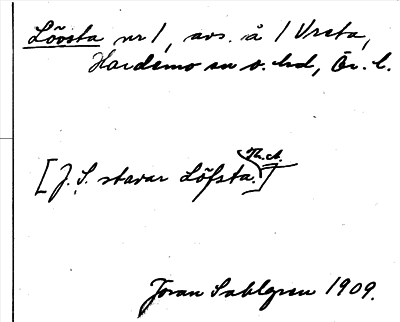 Lövsta nr 1, avs. å 1 Vrsta,
Hardemo sn o. hd, Ör. l.
[J. S. stavar Löfsta.]
Th. A.
Jöran Sahlgren 1909.